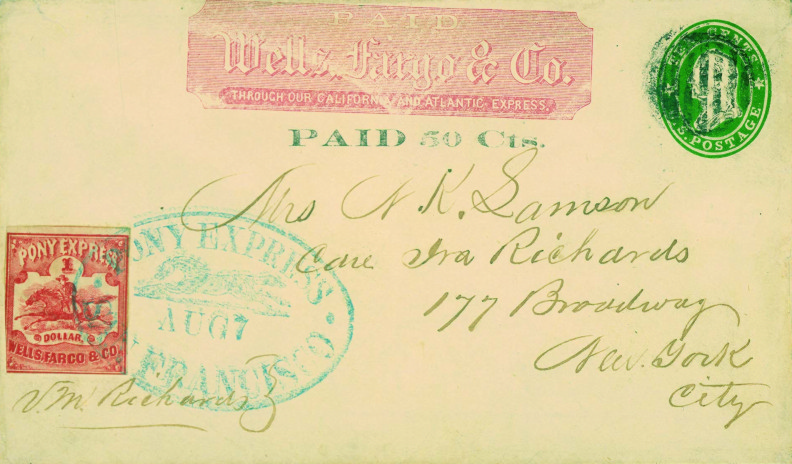 PAID
Wells, Fargo & Co.
THROUGH OUR CALIFORNIA AND ATLANTIC EXPRESS.
PAID 50 Cts.
TEN CENTS
U.S. POSTAGE
Mrs N. K. Samson
Care Ira Richards
177 Broadway
New. York
City
PONY EXPRESS
AUG 7
SAN FRANCISCO
PONY EXPRESS
1
DOLLAR.
WELLS, FARGO & CO.
Richards